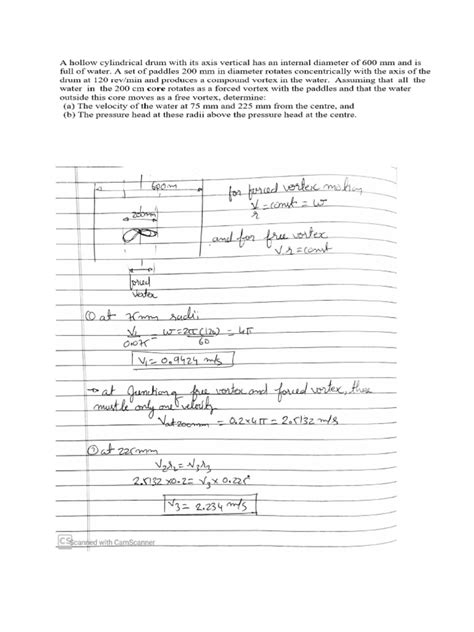 A hollow cylindrical drum with its axis vertical has an internal diameter of 600 mm and is
full of water. A set of paddles 200 mm in diameter rotates concentrically with the axis of the
drum at 120 rev/min and produces a compound vortex in the water. Assuming that all the
water in the 200 cm core rotates as a forced vortex with the paddles and that the water
outside this core moves as a free vortex, determine:
(a) The velocity of the water at 75 mm and 225 mm from the centre, and
(b) The pressure head at these radii above the pressure head at the centre.
600m
200mm
forced
vortex
for forced vortex motion
V/r = const = ω
and for free vortex
Vr = const
① at 75mm radii
V₁/0.075 = ω = 2π(120)/60 = 4π
V₁ = 0.9424 m/s
→ at Junction of free vortex and forced vortex, there
must be only one velocity
Vat 200mm = 0.2×4π = 2.5132 m/s
② at 225mm
V₂r₂ = V₃r₃
2.5132 × 0.2 = V₃ × 0.225
V₃ = 2.234 m/s
CS Scanned with CamScanner